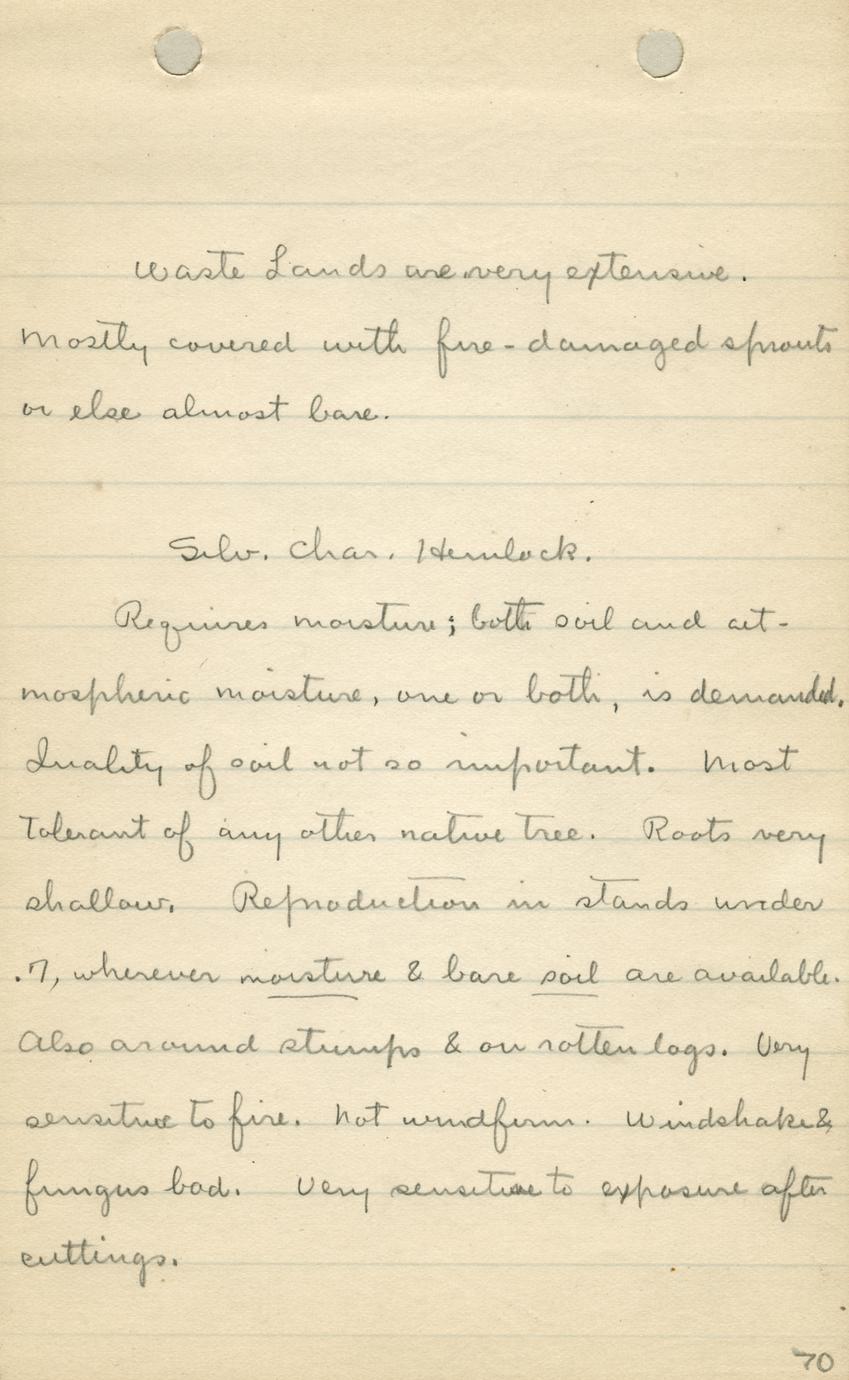 Waste Lands are very extensive.
Mostly covered with fire-damaged sprouts
or else almost bare.
Silv. Char. Hemlock.
Requires moisture; both soil and at-
mospheric moisture, one or both, is demanded.
Quality of soil not so important. Most
tolerant of any other native tree. Roots very
shallow. Reproduction in stands under
.7, wherever moisture & bare soil are available.
Also around stumps & on rotten logs. Very
sensitive to fire. Not windfirm. Windshake &
fungus bad. Very sensitive to exposure after
cuttings.
70